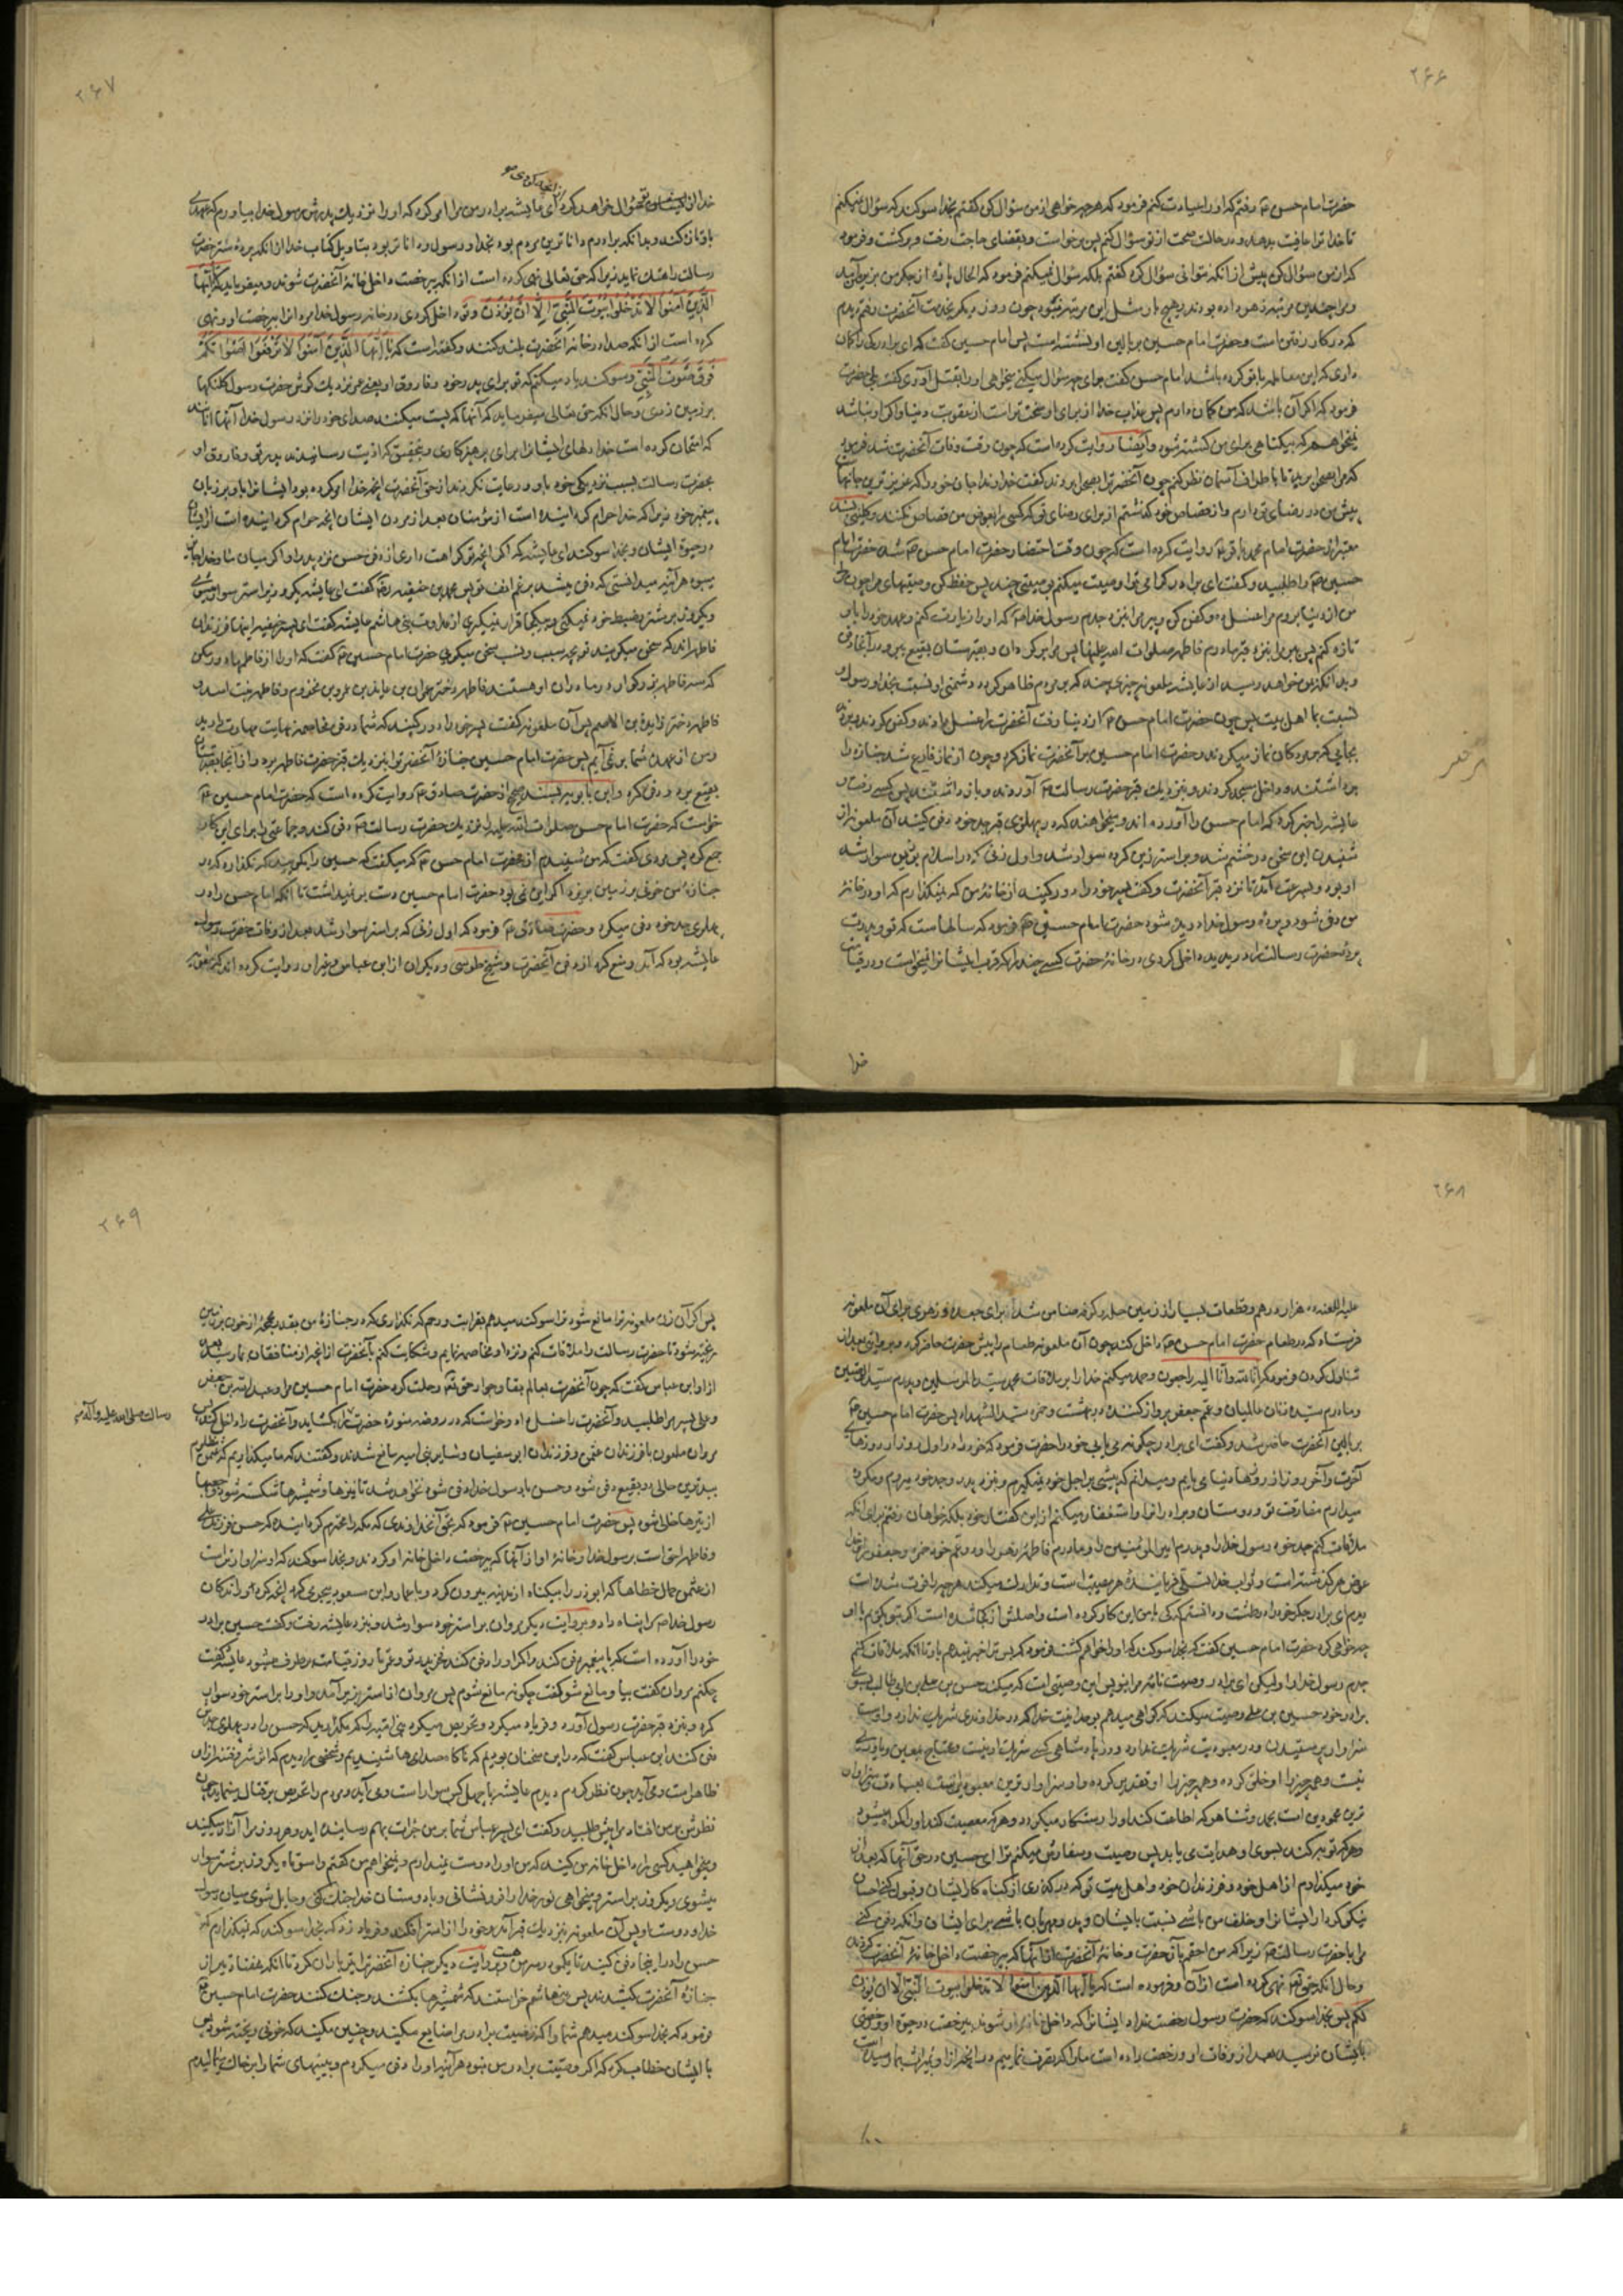 ۲۶۶
حضرت امام حسن ع رفتم که او را عیادت کنم فرمود که هر چه خواهی از من سؤال کن گفتم بخدا سوکند که سؤال نمیکنم
تا خدا ترا عافیت بدهد و در حالت صحت از تو سؤال کنم پس برخواست و بقضای حاجت رفت و برکشت و فرمود
که از من سؤال کن پیش از آنکه نتوانی سؤال کرد گفتم بلکه سؤال نمیکنم فرمود که الحال پاره از جکر من بزیر آمد
و مرا چندین مرتبه زهر داده بودند و هیچ بار مثل این مرتبه نبود چون روز دیگر بخدمت آنحضرت رفتم دیدم
که در کار رفتن است و حضرت امام حسین بر بالین او نشسته است پس امام حسین گفت که ای برادر که را کمان
داری که این معامله با تو کرده باشد امام حسن گفت برای چه سؤال میکنی میخواهی او را بقتل آوری گفت بلی حضرت
فرمود که اگر آن باشد که من کمان دارم پس عذاب خدا از برای او سخت تر است از عقوبت دنیا و اگر او نباشد
نمیخواهم که بیگناهی برای من کشته شود و ایضا روایت کرده است که چون وقت وفات آنحضرت شد فرمود
که مرا بصحرا برید تا باطراف آسمان نظر کنم چون آنحضرت را بصحرا بردند گفت خداوندا جان خود را که عزیزترین جانهاست
پیش من در رضای تو دارم و از قصاص خود گذشتم از برای رضای تو که کسی را بعوض من قصاص نکنند و کلینی بسند
معتبر از حضرت امام محمد باقر ع روایت کرده است که چون وقت احتضار حضرت امام حسن ع شد حضرت امام
حسین ع را طلبید و گفت ای برادر کرامی ترا وصیت میکنم بوصیتی چند پس حفظ کن وصیتهای مرا چون
من از دنیا بروم مرا غسل ده و کفن کن و ببر مرا بنزد جدم رسول خدا ص که او را زیارت کنم و عهد خود را با او
تازه کنم پس مرا بنزد قبر مادرم فاطمه صلوات الله علیها پس مرا بر کردان و بقبرستان بقیع ببر و در آنجا دفن
و بدانکه بمن خواهد رسید از عایشه ملعونه چیزی چند که بر مردم ظاهر کردد دشمنی او نسبت بخدا و رسول و
نسبت بما اهل بیت پس چون حضرت امام حسن ع از دنیا رفت آنحضرت را غسل دادند و کفن کردند و بردند
بجایی که بر مردکان نماز میکردند و حضرت امام حسین بر آنحضرت نماز کرد و چون از نماز فارغ شد جنازه را
برداشتند و داخل مسجد کردند و بنزدیک قبر حضرت رسالت ص آوردند و باز داشتند پس کسی رفت و
عایشه را خبر کرد که امام حسن را آورده اند و میخواهند که در پهلوی قبر جد خود دفن کنند آن ملعونه از
شنیدن این سخن در خشم شد و بر استر زین کرده سوار شد و اول زنی که در اسلام بر زین سوار شد
او بود و بسرعت آمد تا نزد قبر آنحضرت و گفت پسر خود را دور کنید از خانهٔ من که نمیگذارم که او در خانهٔ
من دفن شود و پردهٔ رسول خدا دریده شود حضرت امام حسین ع فرمود که سالهاست که تو و پدرت
پردهٔ حضرت رسالت را دریدید و داخل کردی در خانهٔ حضرت کسی چند را که قرب ایشانرا نمیخواست و در قیامت
خدا
۲۶۷
خدا از ایشان سؤال خواهد کرد ای عایشه برادر من مرا امر کرد که او را نزدیک پدرش رسول خدا بیاورم که عهدی
با او تازه کند و بدانکه برادرم داناترین مردم بود بخدا و رسول و داناتر بود بتاویل کتاب خدا از آنکه پردهٔ ستر حضرت
رسالت را هتک نماید زیرا که حق تعالی نهی کرده است از آنکه بیرخصت داخل خانهٔ آنحضرت شوند و میفرماید که یا ایها
الَّذِینَ آمَنُوا لا تَدْخُلُوا بُیُوتَ النَّبِیِّ اِلّا اَنْ یُؤْذَنَ و تو داخل کردی در خانهٔ رسول خدا مردانرا بیرخصت او و نهی
کرده است از آنکه صدا در خانهٔ آنحضرت بلند کنند و گفته است که یَا اَیُّهَا الَّذِینَ آمَنُوا لا تَرْفَعُوا اَصْوَاتَکُمْ
فَوْقَ صَوْتِ النَّبِیِّ و سوکند یاد میکنم که تو برای پدر خود و فاروق او یعنی عمر نزدیک کوش حضرت رسول کلنکها
بر زمین زدی و حال آنکه حق تعالی میفرماید که آنها که پست میکنند صدای خود را نزد رسول خدا آنها آنانند
که امتحان کرده است خدا دلهای ایشانرا برای پرهیزکاری و بتحقیق که اذیت رسانیدند پدر تو و فاروق او
بحضرت رسالت بسبب نزدیکی خود باو و رعایت نکردند از حق آنحضرت آنچه خدا امر کرده بود ایشانرا باو بر زبان
پیغمبر خود زیرا که خدا حرام کردانیده است از مؤمنان بعد از مردن ایشان آنچه حرام کردانیده است از ایشان
در حیوة ایشان و بخدا سوکند ای عایشه که اگر آنچه تو کراهت داری از دفن حسن نزد پدر او اگر میان ما و خدا جایز
میبود هر آینه میدانستی که دفن میشد برغم انف تو پس محمد بن حنفیه رض گفت ای عایشه یک روز بر استر سوار میشوی
و یکروز بر شتر و ضبط خود نمیکنی و در یکجا قرار نمیکیری از عداوت بنی هاشم عایشه گفت ای پسر حنفیه اینها فرزندان
فاطمه اند که سخن میکویند تو بچه سبب و نسب سخن میکویی حضرت امام حسین ع گفت که او را از فاطمها دور مکن
که سه فاطمه بزرکوار در مادران او هستند فاطمه دختر عمران بن عایذ بن عمرو بن مخزوم و فاطمه بنت اسد و
فاطمه دختر زایدة بن الاصم پس آن ملعونه گفت پسر خود را دور کنید که شما در فن مخاصمه نهایت مهارت دارید
و من از عهدهٔ شما بر نمی آیم پس حضرت امام حسین جنازهٔ آنحضرت را بنزدیک قبر حضرت فاطمه برد و از آنجا بقبرستان
بقیع برد و دفن کرد و ابن بابویه بسند صحیح از حضرت صادق ع روایت کرده است که حضرت امام حسین ع
خواست که حضرت امام حسن صلوات الله علیه را نزدیک حضرت رسالت ص دفن کند و جماعتی را برای این کار
جمع کرد پس مردی گفت که من شنیدم از حضرت امام حسن ع که میگفت که حسین را بگویید که نگذارد که در
جنازهٔ من خونی بر زمین بریزد اگر این نمی بود حضرت امام حسین دست بر نمیداشت تا آنکه امام حسن را در
پهلوی جد خود دفن میکرد و حضرت صادق ع فرمود که اول زنی که بر استر سوار شد بعد از وفات حضرت رسول
عایشه بود که آمد و منع کرد از دفن آنحضرت و شیخ طوسی و دیگران از ابن عباس و غیر او روایت کرده اند که
۲۶۸
علیه اللعنه ده هزار درهم و قطعات بسیار از زمین حله و کوفه ضامن شد از برای جعده و زهری برای آن ملعونه
فرستاد که در طعام حضرت امام حسن ع داخل کند چون آن ملعونه طعام را پیش حضرت حاضر کرد و بعد از
تناول کردن فرمود که انا لله و انا الیه راجعون و حمد میکنم خدا را بر ملاقات محمد سید المرسلین و پدرم سید الوصیین
و مادرم سیدهٔ زنان عالمیان و عمم جعفر پرواز کننده در بهشت و حمزه سید الشهدا پس حضرت امام حسین ع
ببالین آنحضرت حاضر شد و گفت ای برادر چکونه می یابی خود را حضرت فرمود که خود را در اول روز از روزهای
آخرت و آخر روز از روزهای دنیا می یابم و میدانم که پیشی بر اجل خود نمیکیرم و بنزد پدر و جد خود میروم و مکروه
میدارم مفارقت تو و دوستان و برادران را و استغفار میکنم از این گفتار خود بلکه خواهان رفتنم برای آنکه
ملاقات کنم جد خود رسول خدا را و پدرم امیر المؤمنین را و مادرم فاطمهٔ زهرا را و دو عم خود حمزه و جعفر را و خدا
عوض هر گذشته است و ثواب خدا تسلی فرمایندهٔ هر مصیبت است و تدارک میکند هر چه را فوت شده است
دیدم ای برادر جکر خود را در طشت و دانستم که کی با من این کار کرده است و اصلش از کجا شده است اگر بتو بگویم با او
چه خواهی کرد حضرت امام حسین گفت که بخدا سوکند که او را خواهم کشت فرمود که پس ترا خبر نمیدهم باو تا آنکه ملاقات کنم
جدم رسول خدا را ولیکن ای برادر وصیت نامهٔ مرا بنویس این وصیتی است که میکند حسن بن علی بن ابی طالب بسوی
برادر خود حسین بن علی وصیت میکند که کواهی میدهم بوحدانیت خدا که در خداوندی شریک ندارد و اوست
سزاوار پرستیدن و در معبودیت شریک ندارد و در پادشاهی کسی شریک او نیست و محتاج بمعین و یاوری
نیست و همه چیز را او خلق کرده و همه چیز را او تقدیر کرده و او سزاوارترین معبودین است بعبادت و سزاوار
ترین محمودین است بحمد و ثنا هر که اطاعت کند او را رستکار میکردد و هر که معصیت کند او را کمراه میشود
و هر که توبه کند بسوی او هدایت می یابد پس وصیت و سفارش میکنم ترا ای حسین در حق آنها که بعد از
خود میگذارم از اهل خود و فرزندان خود و اهل بیت تو که در گذری از کناه کار ایشان و قبول کنی احسان
نیکو کردار ایشانرا و خلف من باشی نسبت بایشان و پدر مهربان باشی برای ایشان و آنکه دفن کنی
مرا با حضرت رسالت ص زیرا که من احقم بآنحضرت و خانهٔ آنحضرت از آنها که بیرخصت داخل خانهٔ آنحضرت کردند
و حال آنکه حق تعالی نهی کرده است از آن و فرموده است که یا ایها الذین آمنوا لا تدخلوا بیوت النبی الا ان یؤذن
لکم پس بخدا سوکند که حضرت رسول رخصت نداد ایشانرا که داخل خانهٔ او شوند بیرخصت در حق او و رخصتی
بایشان نرسید بعد از وفات او و رخصت داده است ما را که تصرف نماییم در آنچه از او بمیراث بما رسیده است
۲۶۹
پس اگر آن زن ملعونه ترا مانع شود ترا سوکند میدهم بقرابت و رحم که نگذاری که در جنازهٔ من بقدر محجمه از خون بر زمین
ریخته شود تا حضرت رسالت را ملاقات کنم و نزد او مخاصمه نمایم و شکایت کنم بآنحضرت از آنچه از منافقان بما رسید بعد
از او ابن عباس گفت که چون آنحضرت بعالم بقا و جوار حق تعالی رحلت کرد حضرت امام حسین مرا و عبد الله بن جعفر
و علی پسر مرا طلبید و آنحضرت را غسل داد و خواست که در روضهٔ منورهٔ حضرت را بکشاید و آنحضرت را داخل کند پس
رسالت صلی الله علیه و آله
مروان ملعون با فرزندان عثمن و فرزندان ابو سفیان و سایر بنی امیه مانع شدند و گفتند که ما میگذاریم که عثمن مظلوم
ببدترین حالی در بقیع دفن شود و حسن با رسول خدا دفن شود نخواهد شد تا نیزها و شمشیرها شکسته شود و جعبها
از تیرها خالی شود پس حضرت امام حسین ع فرمود که بحق آنخداوندی که مکه را محترم کردانیده که حسن فرزند علی
و فاطمه احق است برسول خدا و خانهٔ او از آنها که بیرخصت داخل خانه او کردند و بخدا سوکند که او سزاوارتر است
از عثمن حمال خطاها که ابوذر را بیکناه از مدینه بیرون کرد و با عمار و ابن مسعود بیحرمتی کرد آنچه کرد و راندکان
رسول خدا ص را پناه داد و بروایت دیگر مروان بر استر خود سوار شد و بنزد عایشه رفت و گفت حسین برادر
خود را آورده است که با پیغمبر دفن کند و اگر او را دفن کند فخر پدر تو و عمر تا روز قیامت برطرف میشود عایشه گفت
چکنم مروان گفت بیا و مانع شو گفت چکونه مانع شوم پس مروان از استر بزیر آمد و او را بر استر خود سوار
کرد و بنزد قبر حضرت رسول آورد و فریاد میکرد و تحریص میکرد بنی امیه را که مگذارید که حسن را در پهلوی جدش
دفن کنند ابن عباس گفت که در این سخنان بودیم که ناکاه صداها شنیدیم و شخصی را دیدیم که اثر شر و فتنه از او
ظاهر است و می آید چون نظر کردم دیدم عایشه با چهل کس سوار است و می آید و مردم را تحریص بر قتال مینماید چون
نظرش بر من افتاد مرا پیش طلبید و گفت ای پسر عباس شما بر من جرأت بهم رسانیده اید و هر روز مرا آزار میکنید
و میخواهید کسی را داخل خانهٔ من کنید که من او را دوست نمیدارم و نمیخواهم من گفتم واسوأتاه یکروز بر شتر سوار
میشوی و یکروز بر استر و میخواهی نور خدا را فرو نشانی و با دوستان خدا جنک کنی و حایل شوی میان رسول
خدا و دوست او پس آن ملعونه بنزدیک قبر آمد و خود را از استر افکند و فریاد زد که بخدا سوکند که نمیگذارم که
حسن را در اینجا دفن کنید تا یکمو در سر من هست و بروایت دیگر جنازهٔ آنحضرت را تیر باران کردند تا آنکه هفتاد تیر از
جنازهٔ آنحضرت کشیدند پس بنی هاشم خواستند که شمشیرها بکشند و جنک کنند حضرت امام حسین ع
فرمود که بخدا سوکند میدهم شما را که وصیت برادر مرا ضایع مکنید و چنین مکنید که خونی ریخته شود پس
با ایشان خطاب کرد که اگر وصیت برادرم نبود هر آینه او را دفن میکردم و بینیهای شما را بر خاک میمالیدم